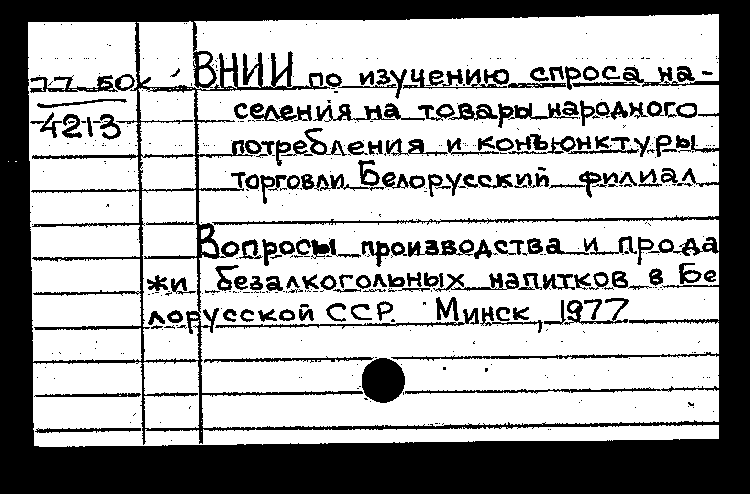 77-50к ВНИИ по изучению спроса на-
4213 селения на товары народного
потребления и конъюнктуры
торговли. Белорусский филиал
Вопросы производства и прода
жи безалкогольных напитков в Бе
лорусской ССР. Минск, 1977